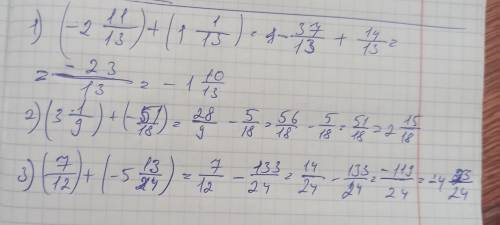 1) (-2 11/13) + (1 1/13) = - 37/13 + 14/13 =
= -23/13 = -1 10/13
2) (3 1/9) + (-5/18) = 28/9 - 5/18 = 56/18 - 5/18 = 51/18 = 2 15/18
3) (7/12) + (-5 13/24) = 7/12 - 133/24 = 14/24 - 133/24 = -119/24 = -4 23/24